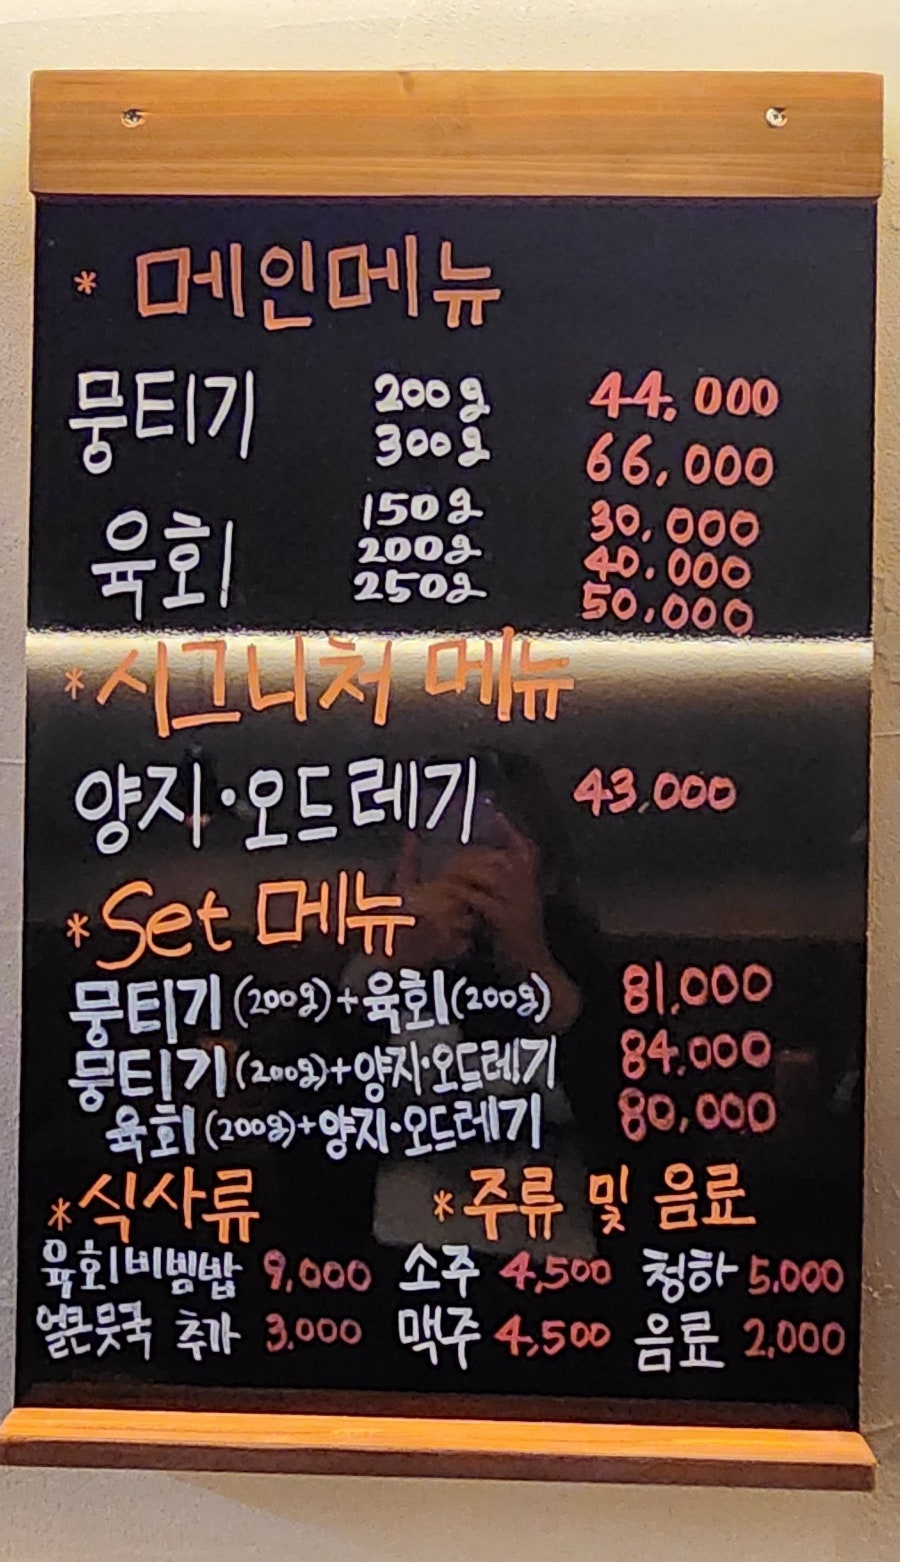 * 메인메뉴
뭉티기 200g 44,000
300g 66,000
육회 150g 30,000
200g 40,000
250g 50,000
*시그니처 메뉴
양지·오드레기 43,000
*Set 메뉴
뭉티기(200g)+육회(200g) 81,000
뭉티기(200g)+양지·오드레기 84,000
육회(200g)+양지·오드레기 80,000
*식사류 *주류 및 음료
육회비빔밥 9,000 소주 4,500 청하 5,000
얼큰뭇국 추가 3,000 맥주 4,500 음료 2,000